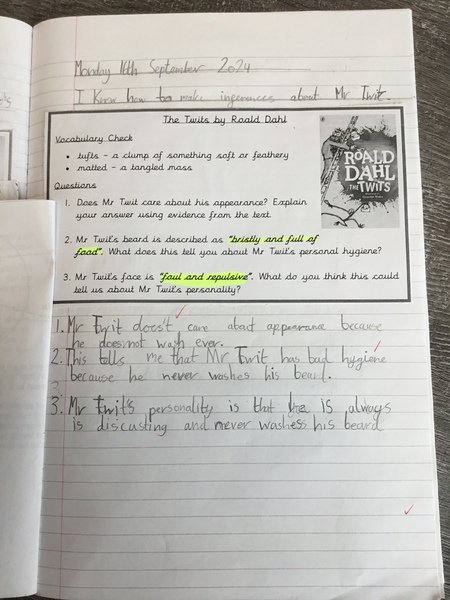 Monday 16th September 2024
I Know how to make inferences about Mr Twit.
The Twits by Roald Dahl
Vocabulary Check
• tufts – a clump of something soft or feathery
• matted – a tangled mass
Questions
1. Does Mr Twit care about his appearance? Explain
your answer using evidence from the text.
2. Mr Twit's beard is described as "bristly and full of
food". What does this tell you about Mr Twit's personal hygiene?
3. Mr Twit's face is "foul and repulsive". What do you think this could
tell us about Mr Twit's personality?
ROALD
DAHL
THE TWITS
1. Mr Twit does't care about appearance because
he does not wash ever.
2. This tells me that Mr Twit has bad hygiene
because he never washes his beard.
3. Mr Twit's personality is that he is always
is discusting and never washess his beard